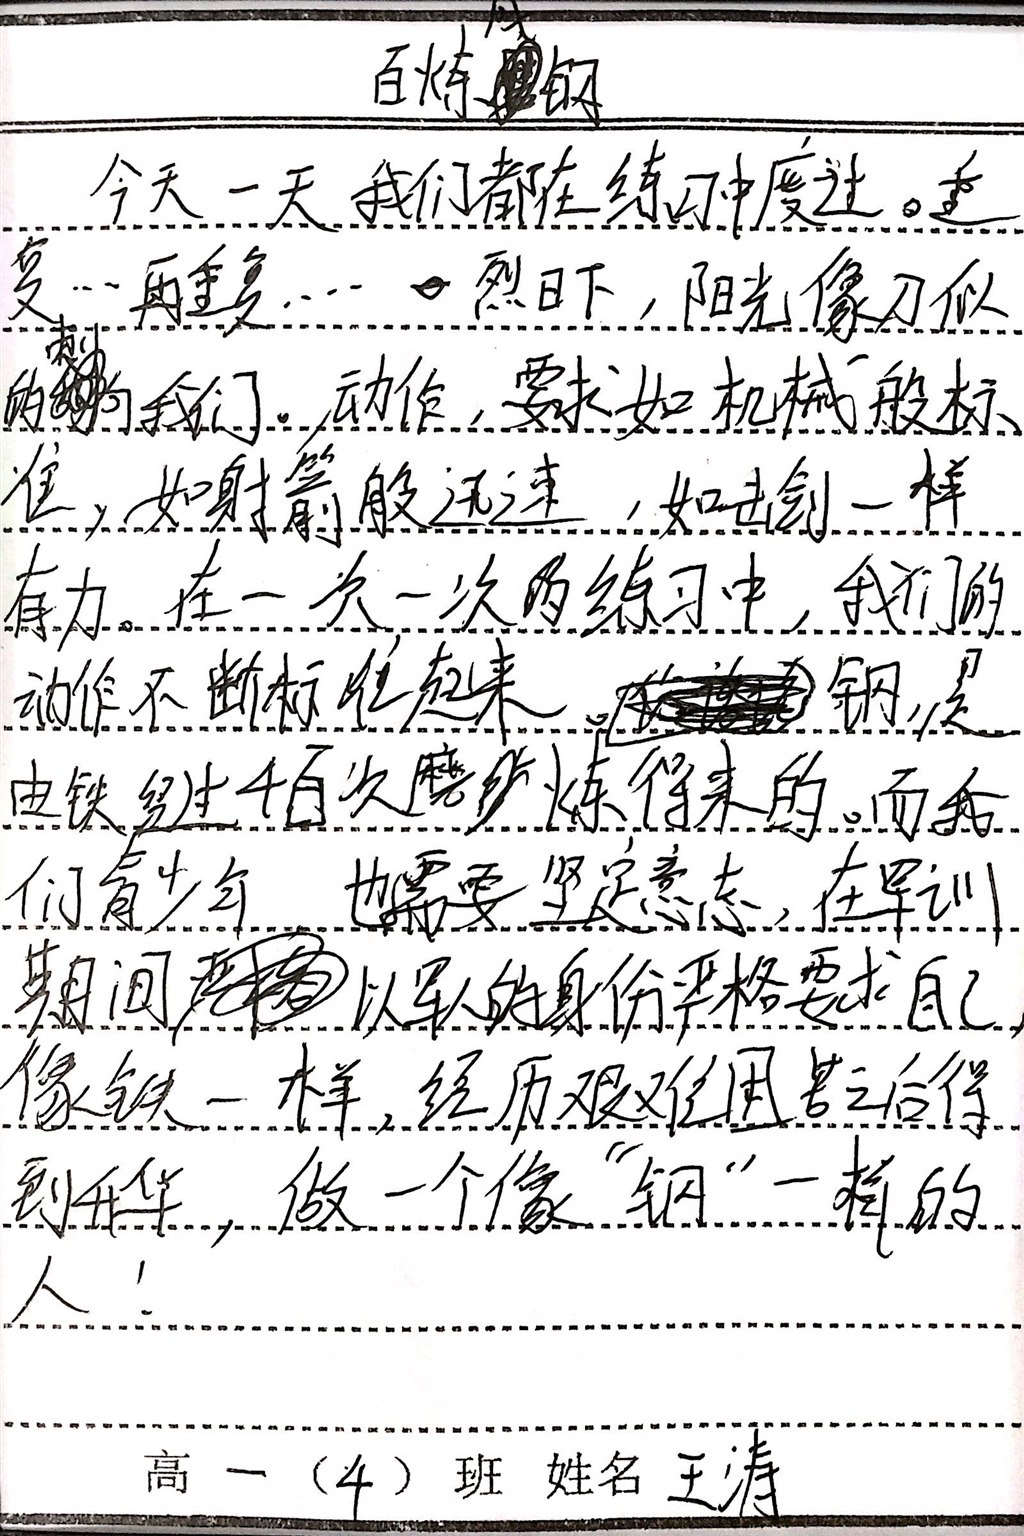 百炼成钢
今天一天我们都在练习中度过。重
复……再重复……烈日下，阳光像刀似
的刺向我们。动作，要求如机械般标
准，如射箭般迅速，如击剑一样
有力。在一次一次的练习中，我们的
动作不断标准起来。钢，是
由铁经过千百次磨炼得来的。而我
们青少年也需要坚定意志，在军训
期间以军人的身份严格要求自己，
像铁一样，经历艰难困苦之后得
到升华，做一个像“钢”一样的
人！
高一（4）班 姓名 王涛